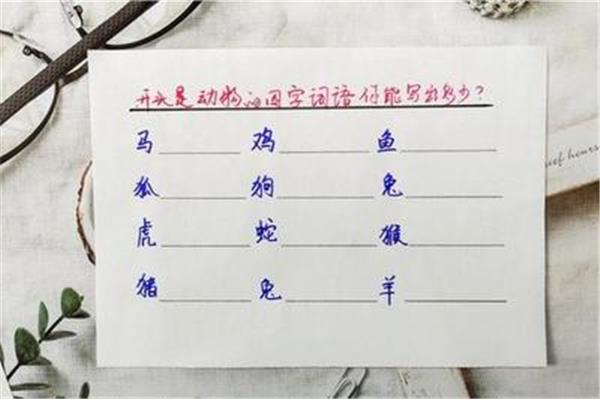 开头是动物的四字词语你能写出多少?
马 鸡 鱼
狐 狗 兔
虎 蛇 猴
猪 兔 羊
of hours